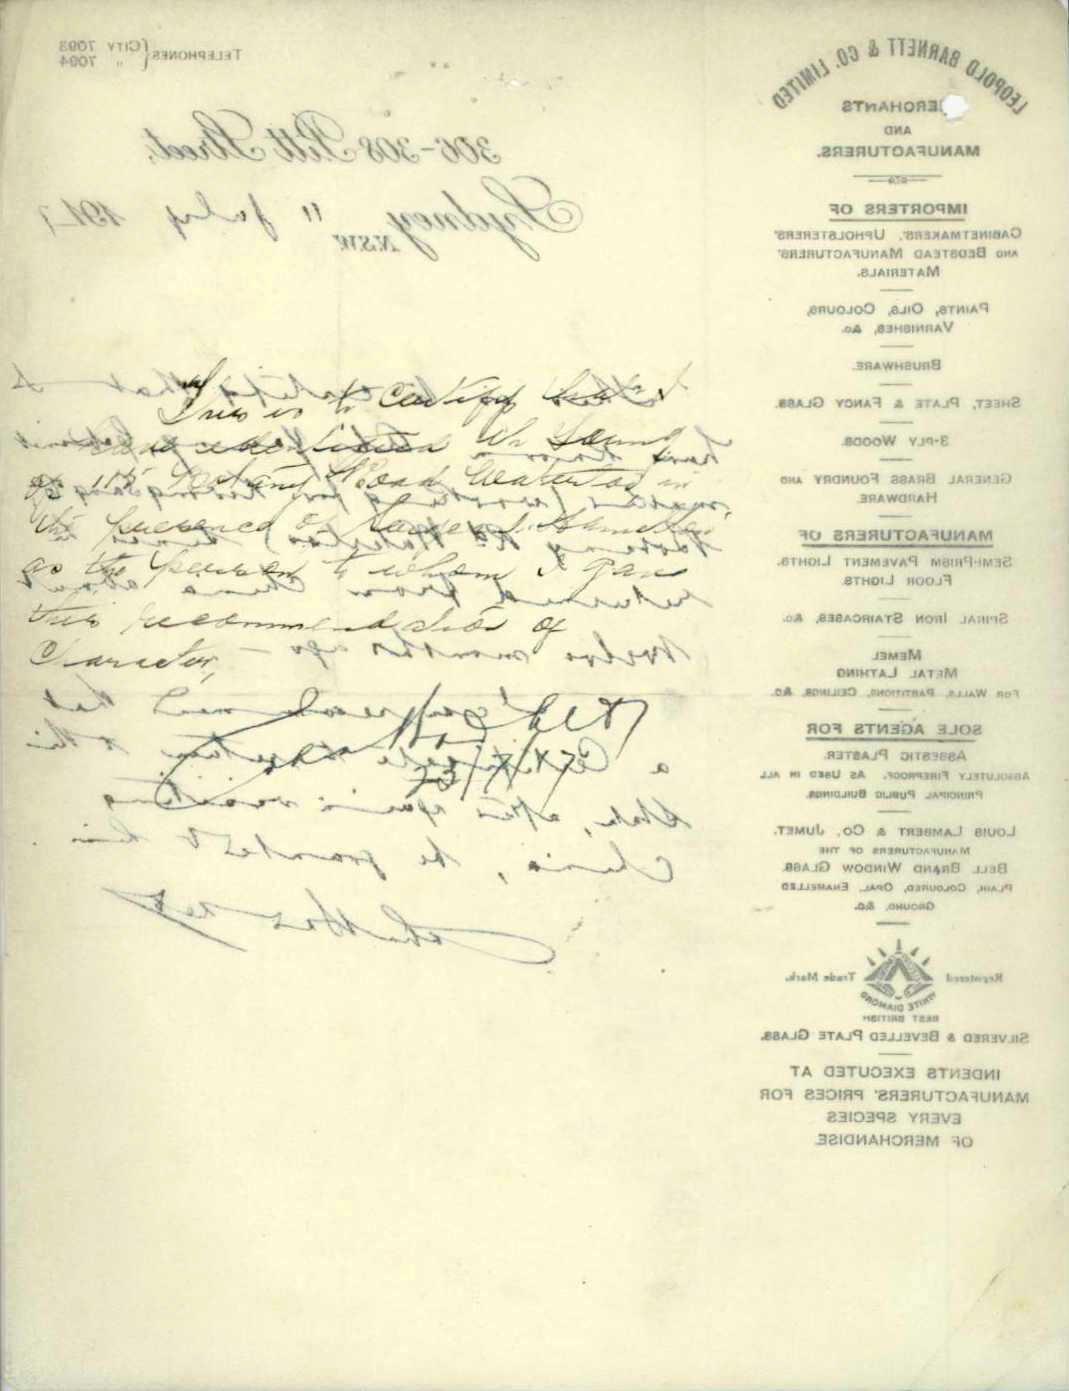 TELEPHONES { CITY 7093
" 7094
LEOPOLD BARNETT & CO. LIMITED
MERCHANTS
AND
MANUFACTURERS.
306-308 Pitt Street,
Sydney 11 July 1917
N.S.W.
IMPORTERS OF
CABINETMAKERS', UPHOLSTERERS'
AND BEDSTEAD MANUFACTURERS'
MATERIALS.
PAINTS, OILS, COLOURS,
VARNISHES, &c.
BRUSHWARE.
SHEET, PLATE & FANCY GLASS.
3-PLY WOODS.
GENERAL BRASS FOUNDRY AND
HARDWARE.
MANUFACTURERS OF
SEMI-PRISM PAVEMENT LIGHTS.
FLOOR LIGHTS.
SPIRAL IRON STAIRCASES, &c.
MEMEL
METAL LATHING
FOR WALLS, PARTITIONS, CEILINGS, &c.
SOLE AGENTS FOR
ASBESTIC PLASTER.
ABSOLUTELY FIREPROOF. AS USED IN ALL
PRINCIPAL PUBLIC BUILDINGS.
LOUIS LAMBERT & CO., JUMET.
MANUFACTURERS OF THE
BELL BRAND WINDOW GLASS.
PLAIN, COLOURED, OPAL, ENAMELLED
GROUND, &c.
Registered Trade Mark.
WHITE DIAMOND
BEST BRITISH
SILVERED & BEVELLED PLATE GLASS.
INDENTS EXECUTED AT
MANUFACTURERS' PRICES FOR
EVERY SPECIES
OF MERCHANDISE.
This is to Certify that I
have identified
of 113 Botany Road Waterloo in
the presence of
as the person to whom I gave
this recommendation of
Character,
returned from China about
twelve months ago -
that
a Certificate
State, after again visiting
China, be granted to him